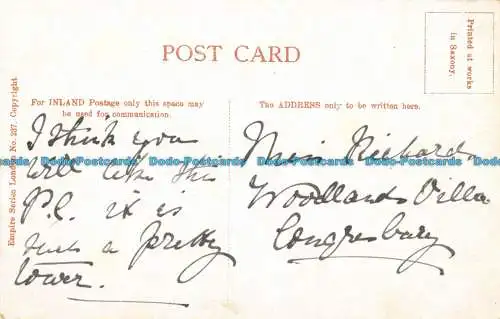 POST CARD
Printed at works
in Saxony.
For INLAND Postage only this space may
be used for communication.
The ADDRESS only to be written here.
Empire Series London, No. 237. Copyright
I think you
will like this
P.C. it is
such a pretty
tower.
Miss Richards
Woodlands Villa
Congresbury
Dodo-Postcards Dodo-Postcards Dodo-Postcards Dodo-Postcards Dodo-Postcards Dodo-Postcards